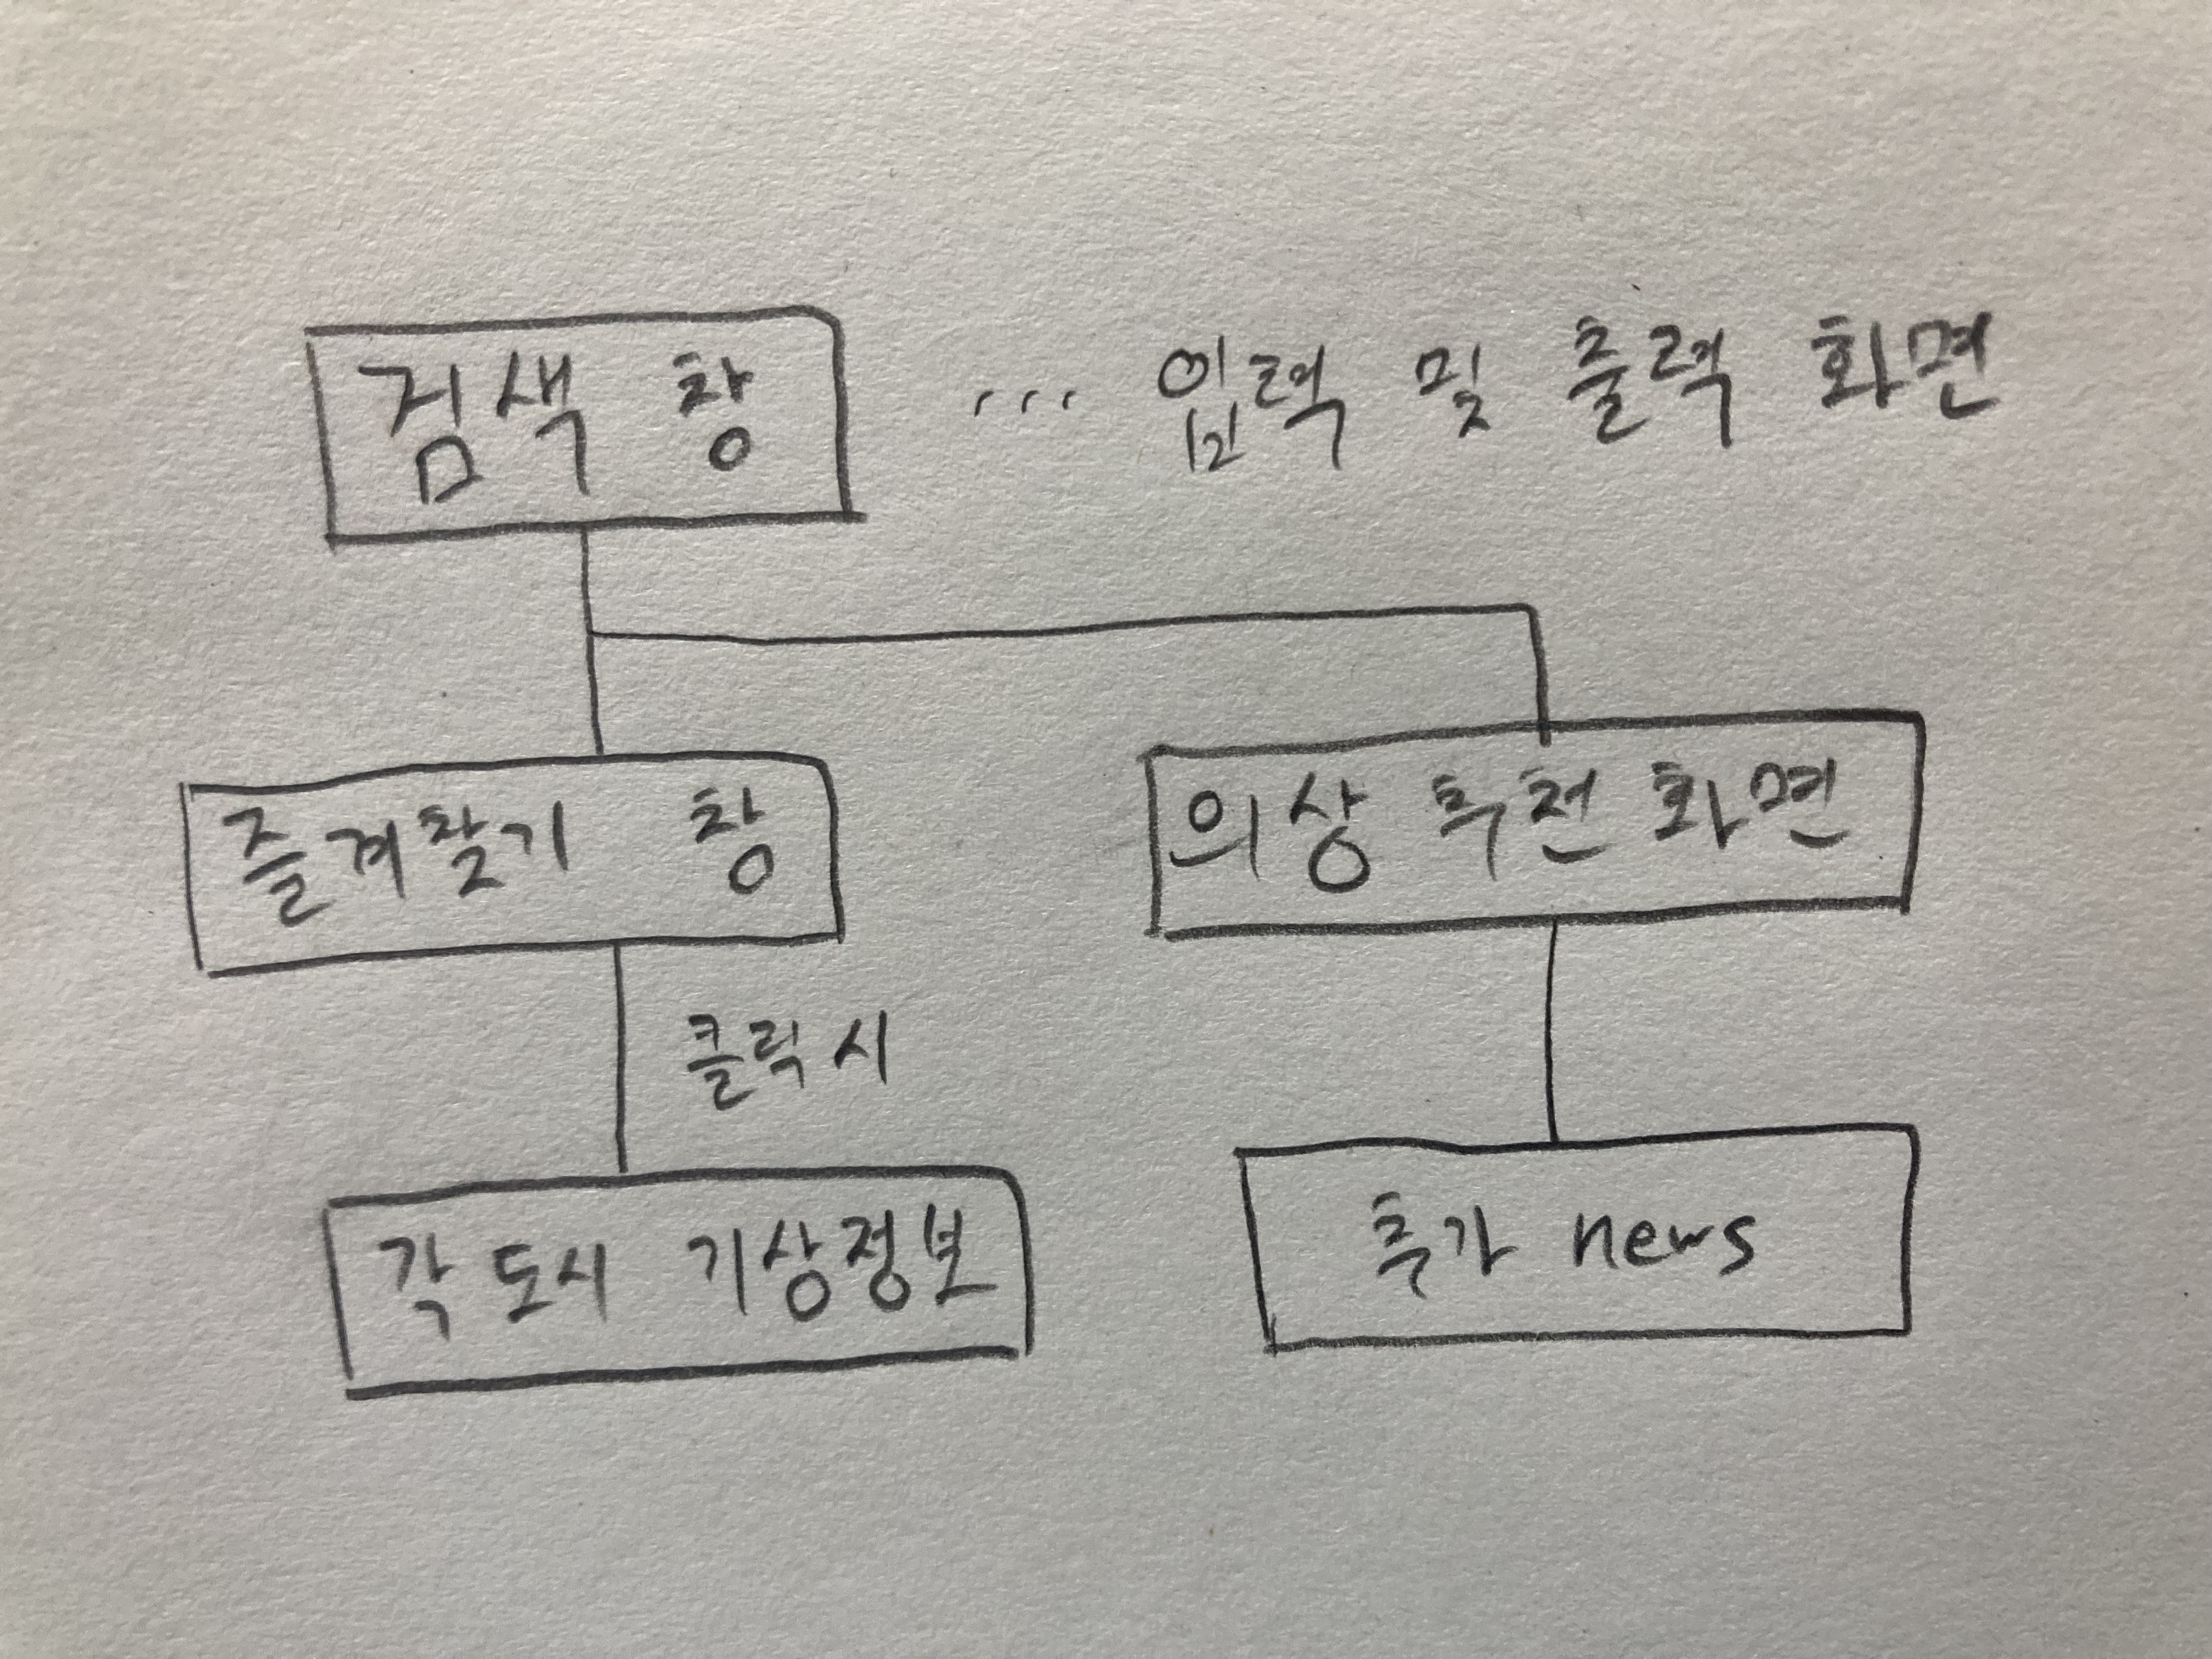 검색 창 ... 입력 및 출력 화면
즐겨찾기 창
의상 추천 화면
클릭 시
각 도시 기상정보
추가 news